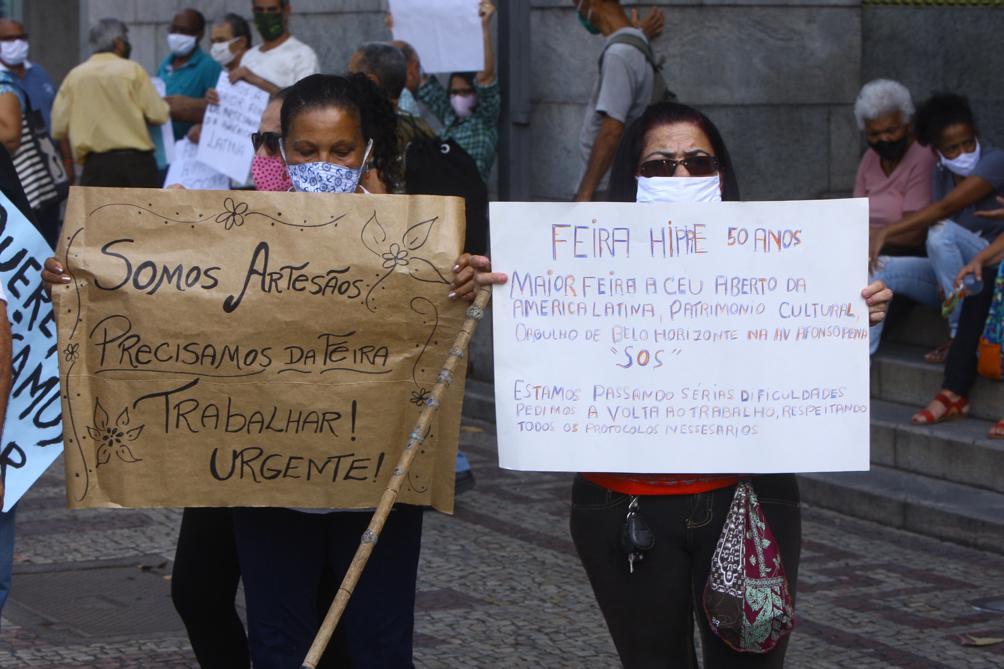 SOMOS ARTESÃOS
PRECISAMOS DA FEIRA
TRABALHAR!
URGENTE!
FEIRA HIPPIE 50 ANOS
MAIOR FEIRA A CEU ABERTO DA
AMERICA LATINA, PATRIMONIO CULTURAL,
ORGULHO DE BELO HORIZONTE NA AV AFONSO PENA
"SOS"
ESTAMOS PASSANDO SÉRIAS DIFICULDADES
PEDIMOS A VOLTA AO TRABALHO, RESPEITANDO
TODOS OS PROTOCOLOS NESSESÁRIOS
LATINA